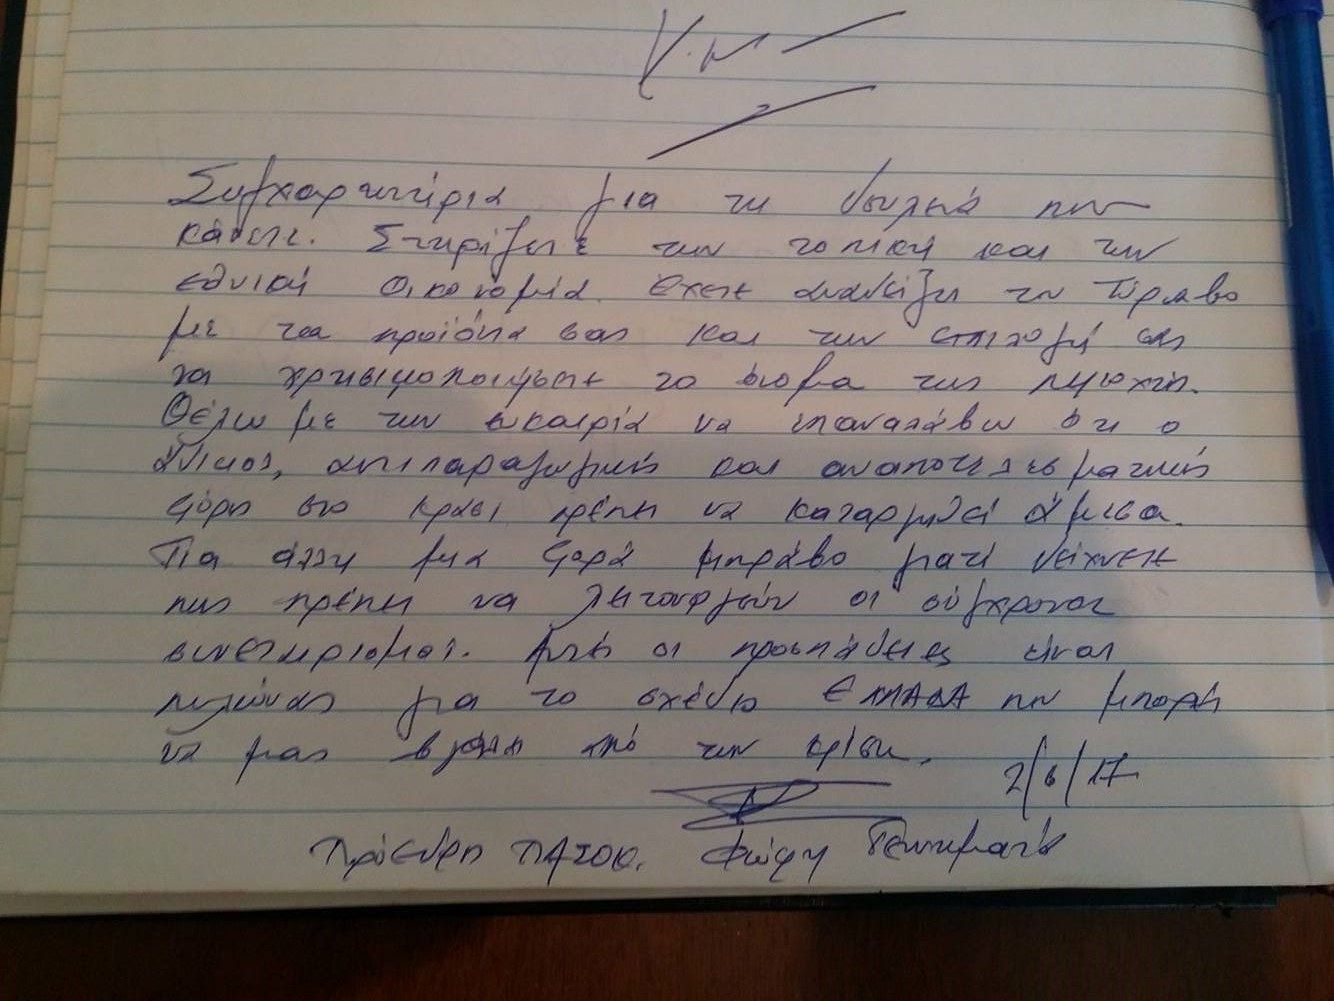 Συγχαρητήρια για τη δουλειά που
κάνετε. Στηρίζετε την τοπική και την
εθνική οικονομία. Έχετε αναδείξει τον Τύρναβο
με τα προϊόντα σας και την επιλογή σας
να χρησιμοποιήσετε το όνομα της περιοχής.
Θέλω με την ευκαιρία να επαναλάβω ότι ο
άδικος, αντιπαραγωγικός και αναποτελεσματικός
φόρος στο κρασί πρέπει να καταργηθεί άμεσα.
Για άλλη μια φορά μπράβο γιατί δείχνετε
πως πρέπει να λειτουργούν οι σύγχρονοι
συνεταιρισμοί. Αυτές οι προσπάθειες είναι
πυλώνας για το σχέδιο ΕΛΛΑΔΑ που μπορεί
να μας βγάλει από την κρίση.
2/6/17
Πρόεδρος ΠΑΣΟΚ. Φώφη Γεννηματά